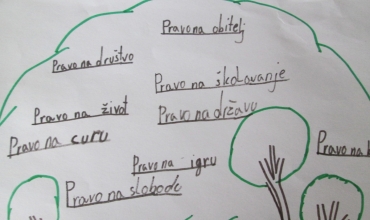 Pravo na obitelj
Pravo na društvo
Pravo na školovanje
Pravo na život
Pravo na državu
Pravo na curu
Pravo na igru
Pravo na
Pravo na slobode